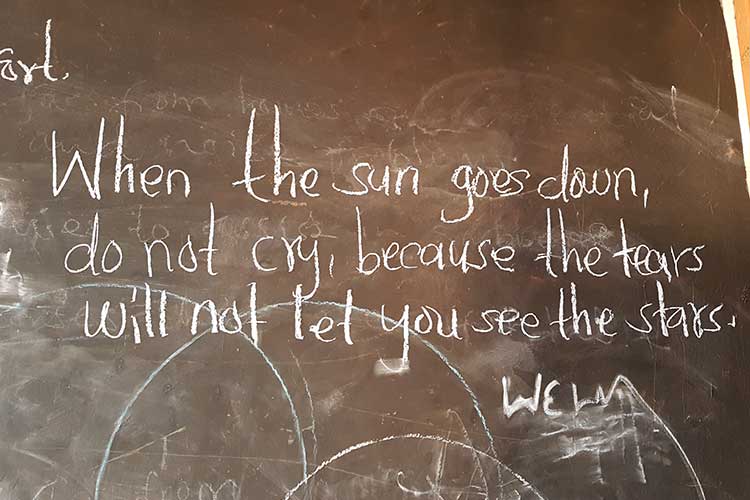 When the sun goes down,
do not cry, because the tears
will not let you see the stars.